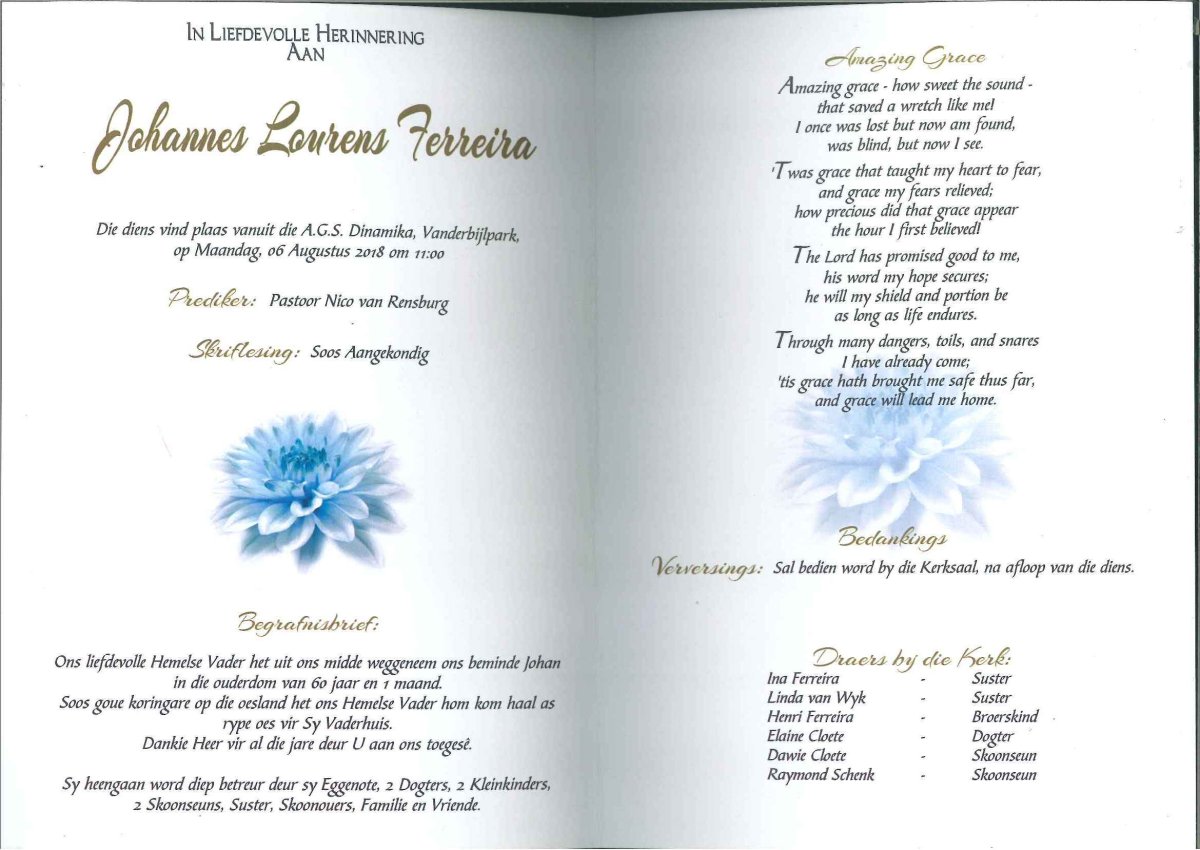 In Liefdevolle Herinnering
Aan
Johannes Lourens Ferreira
Die diens vind plaas vanuit die A.G.S. Dinamika, Vanderbijlpark,
op Maandag, 06 Augustus 2018 om 11:00
Prediker: Pastoor Nico van Rensburg
Skriflesing: Soos Aangekondig
Begrafnisbrief:
Ons liefdevolle Hemelse Vader het uit ons midde weggeneem ons beminde Johan
in die ouderdom van 60 jaar en 1 maand.
Soos goue koringare op die oesland het ons Hemelse Vader hom kom haal as
rype oes vir Sy Vaderhuis.
Dankie Heer vir al die jare deur U aan ons toegesê.
Sy heengaan word diep betreur deur sy Eggenote, 2 Dogters, 2 Kleinkinders,
2 Skoonseuns, Suster, Skoonouers, Familie en Vriende.
Amazing Grace
Amazing grace - how sweet the sound -
that saved a wretch like me!
I once was lost but now am found,
was blind, but now I see.
'Twas grace that taught my heart to fear,
and grace my fears relieved;
how precious did that grace appear
the hour I first believed!
The Lord has promised good to me,
his word my hope secures;
he will my shield and portion be
as long as life endures.
Through many dangers, toils, and snares
I have already come;
'tis grace hath brought me safe thus far,
and grace will lead me home.
Bedankings
Verversings: Sal bedien word by die Kerksaal, na afloop van die diens.
Draers by die Kerk:
Ina Ferreira - Suster
Linda van Wyk - Suster
Henri Ferreira - Broerskind
Elaine Cloete - Dogter
Dawie Cloete - Skoonseun
Raymond Schenk - Skoonseun